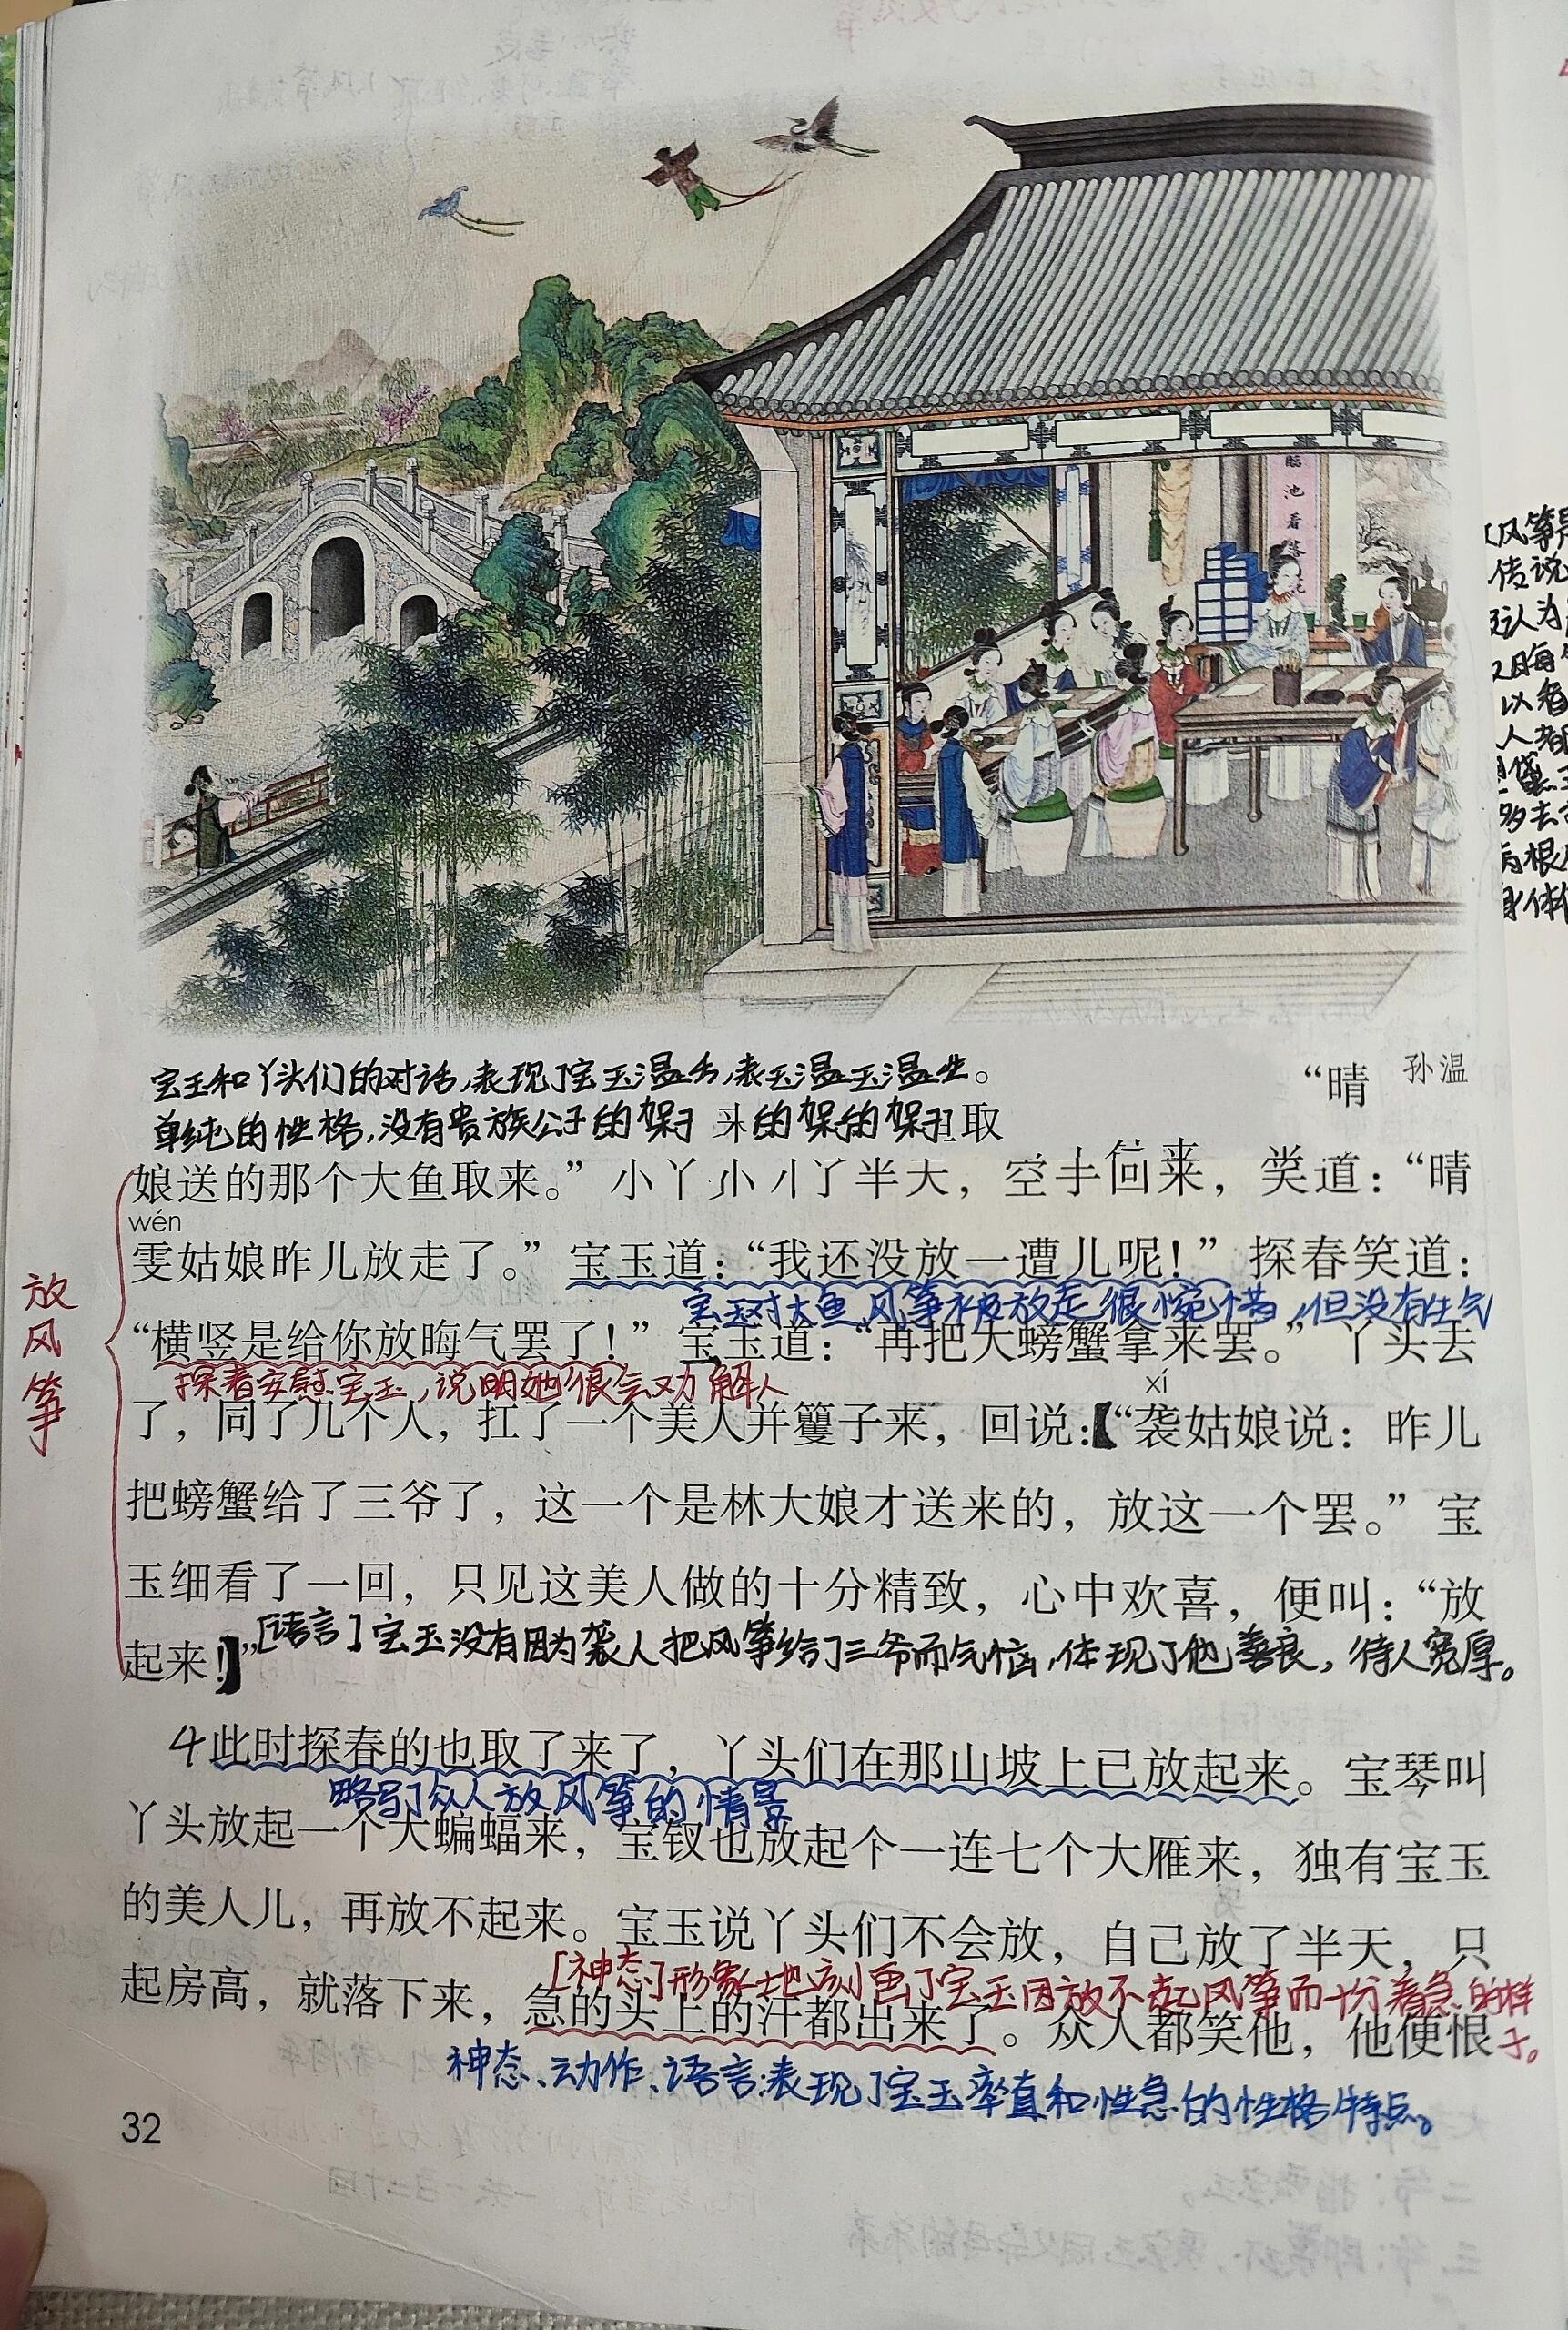 临池看
宝玉和丫头们的对话,表现了宝玉温
单纯的性格,没有贵族公子的架子
“晴 孙温
取
娘送的那个大鱼取来。”小丫
半天,空手回来,笑道:“晴
wén
雯姑娘昨儿放走了。”宝玉道:“我还没放一遭儿呢!”探春笑道:
宝玉对大鱼风筝被放走很惋惜,但没有生气
“横竖是给你放晦气罢了!”宝玉道:“再把大螃蟹拿来罢。”丫头去
探春安慰宝玉,说明她很会劝解人
xí
了,同了几个人,扛了一个美人并籰子来,回说:【“袭姑娘说:昨儿
把螃蟹给了三爷了,这一个是林大娘才送来的,放这一个罢。”宝
玉细看了一回,只见这美人做的十分精致,心中欢喜,便叫:“放
起来!】”[语言]宝玉没有因为袭人把风筝给了三爷而气恼,体现了他善良,待人宽厚。
放风筝
4此时探春的也取了来了,丫头们在那山坡上已放起来。宝琴叫
略写了众人放风筝的情景
丫头放起一个大蝙蝠来,宝钗也放起个一连七个大雁来,独有宝玉
的美人儿,再放不起来。宝玉说丫头们不会放,自己放了半天,只
[神态]形象地刻画了宝玉因放不起风筝而十分着急的样子。
起房高,就落下来,急的头上的汗都出来了。众人都笑他,他便恨
神态、动作、语言:表现了宝玉率直和性急的性格特点。
32
风筝
传说
认为
以
人
身体